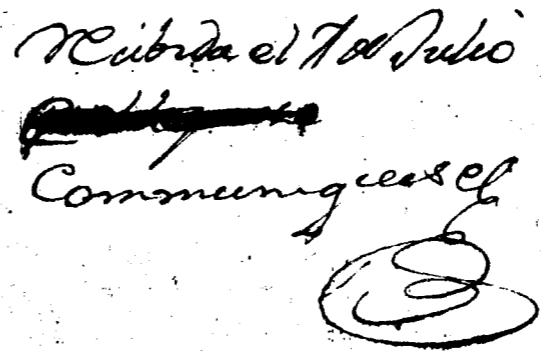 recibida el 7 de Julio
Communiquese